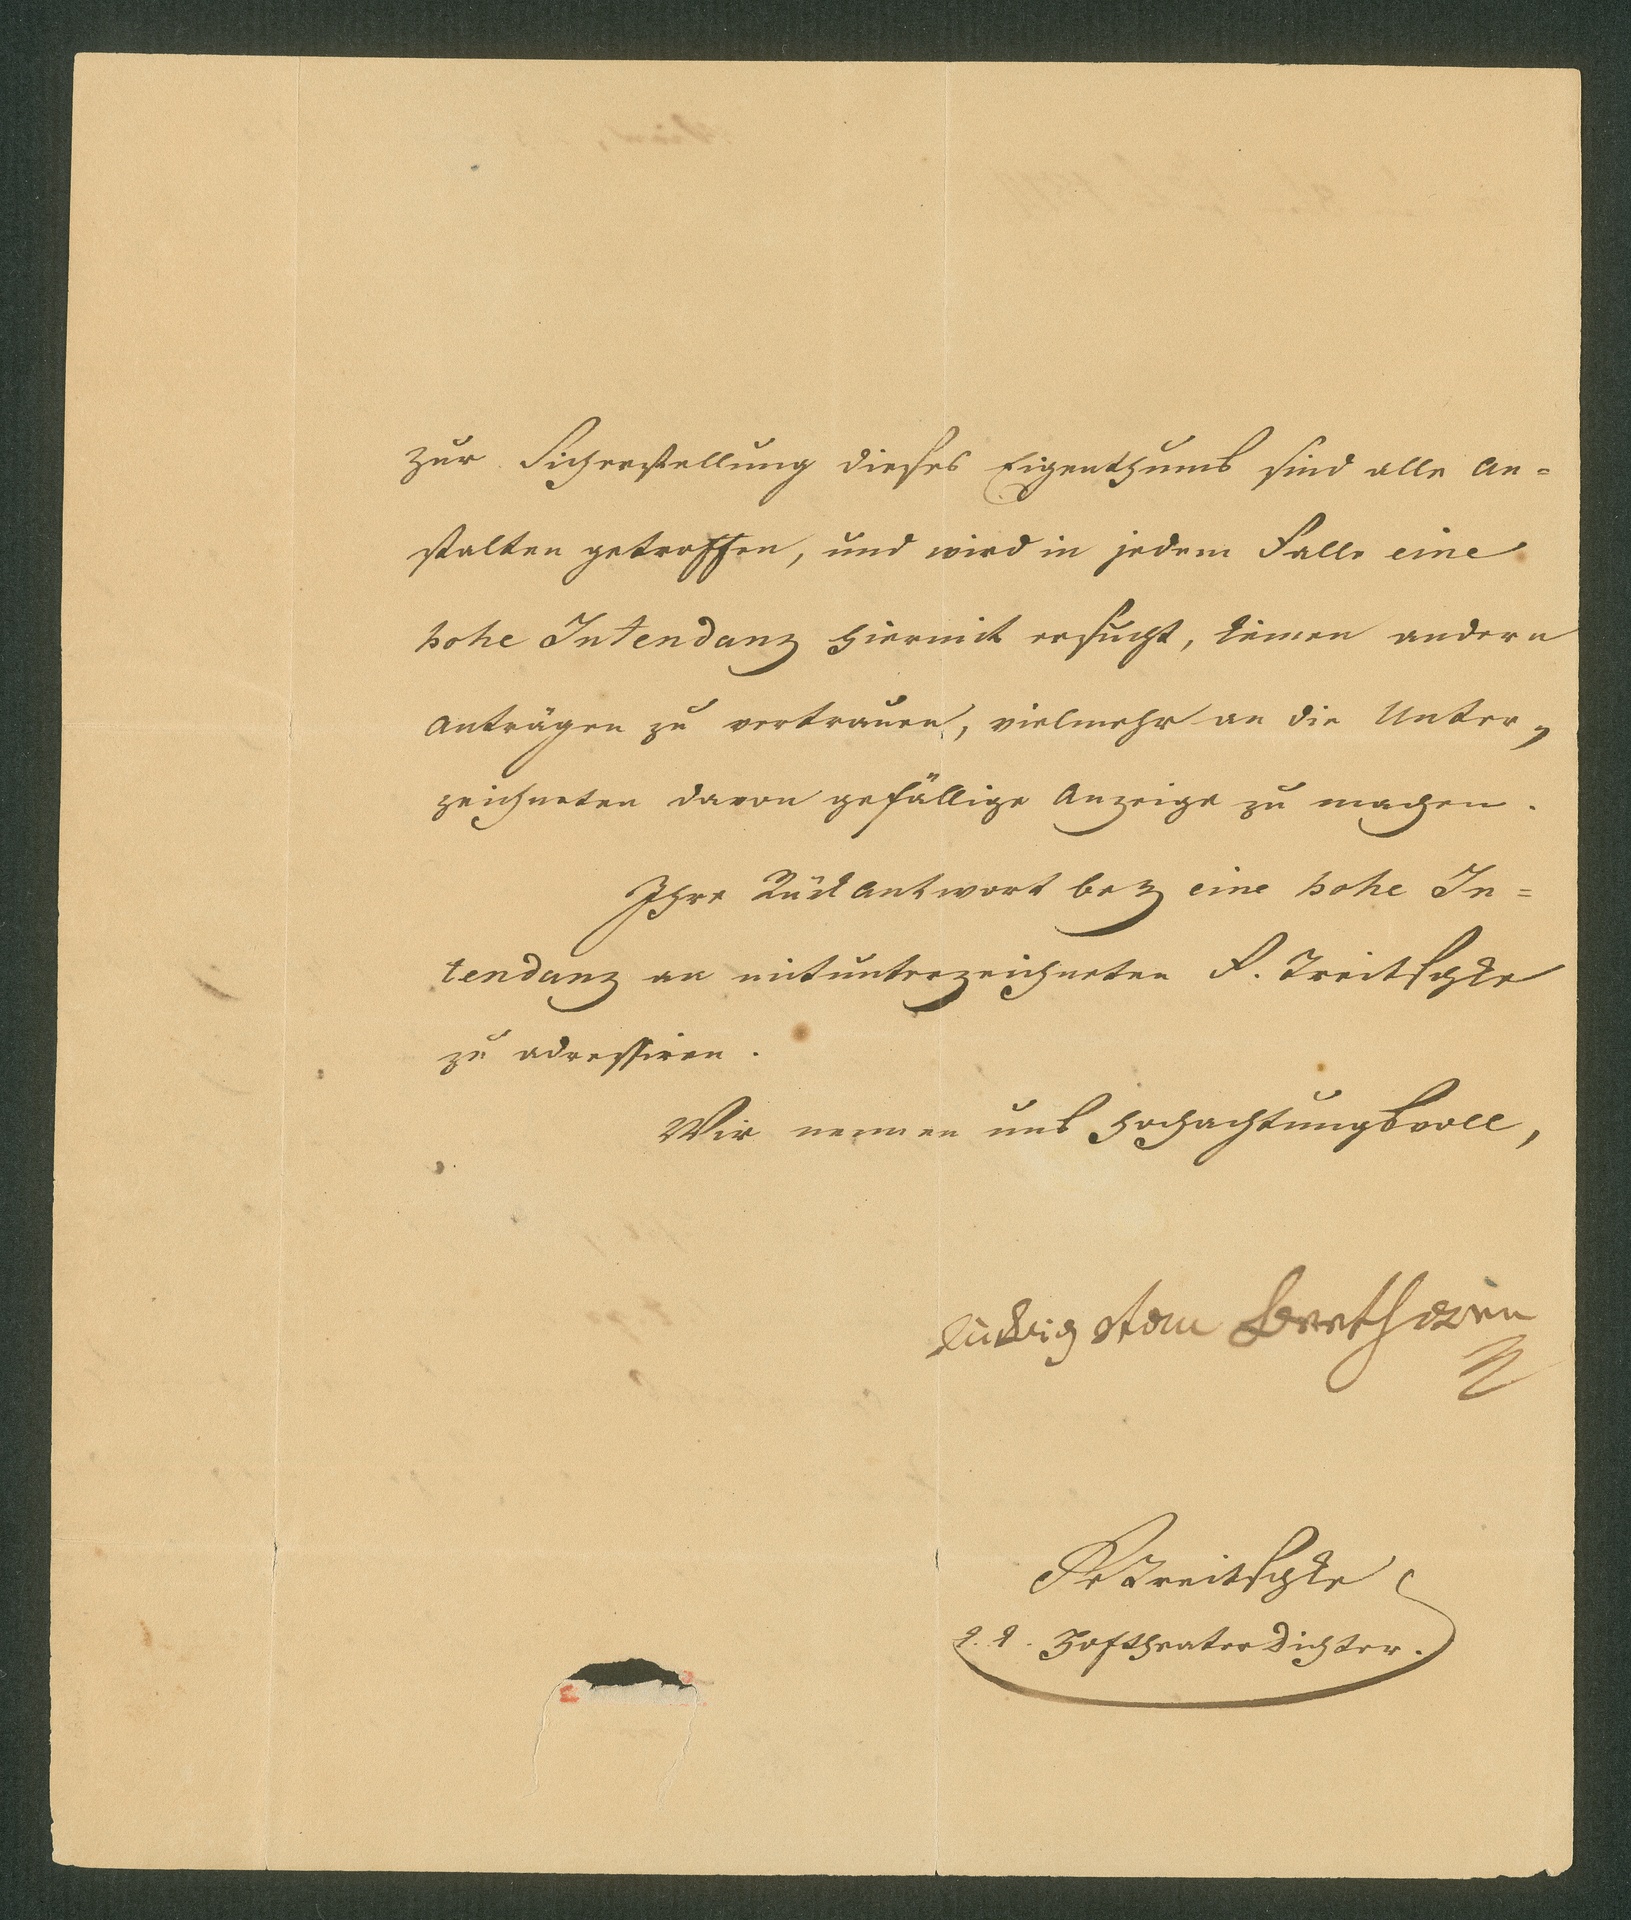 zur Sicherstellung dieses Eigenthums sind alle An=
stalten getroffen, und wird in jedem Falle eine
hohe Intendanz hiermit ersucht, keinen andern
Anträgen zu vertrauen, vielmehr an die Unter„
zeichneten davon gefällige Anzeige zu machen.
Ihre Rückantwort bez eine hohe In=
tendanz an mitunterzeichneten F. Treitschke
zu adressiren.
Wir nennen uns hochachtungsvoll,
Ludwig van Beethoven
Fr Treitschke
k. k. HoftheaterDichter.